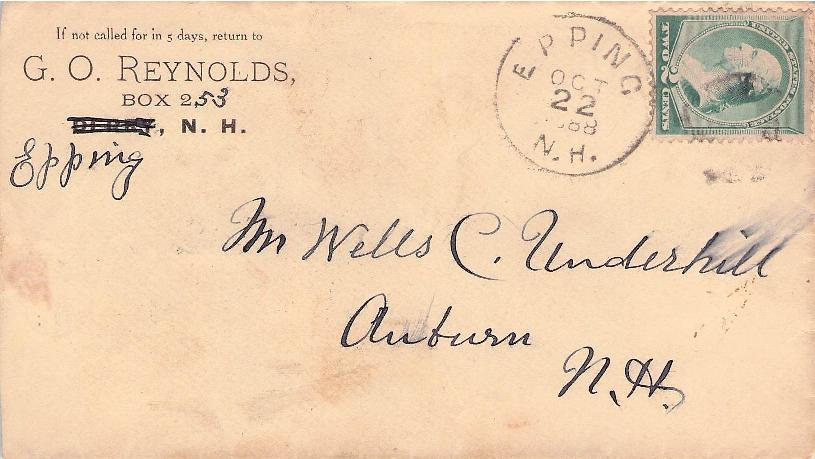 If not called for in 5 days, return to
G. O. REYNOLDS,
BOX 253
DERRY, N. H.
Epping
EPPING
OCT
22
1888
N. H.
TWO 2 CENTS
UNITED STATES POSTAGE
Mr Wells C. Underhill
Auburn
N.H.